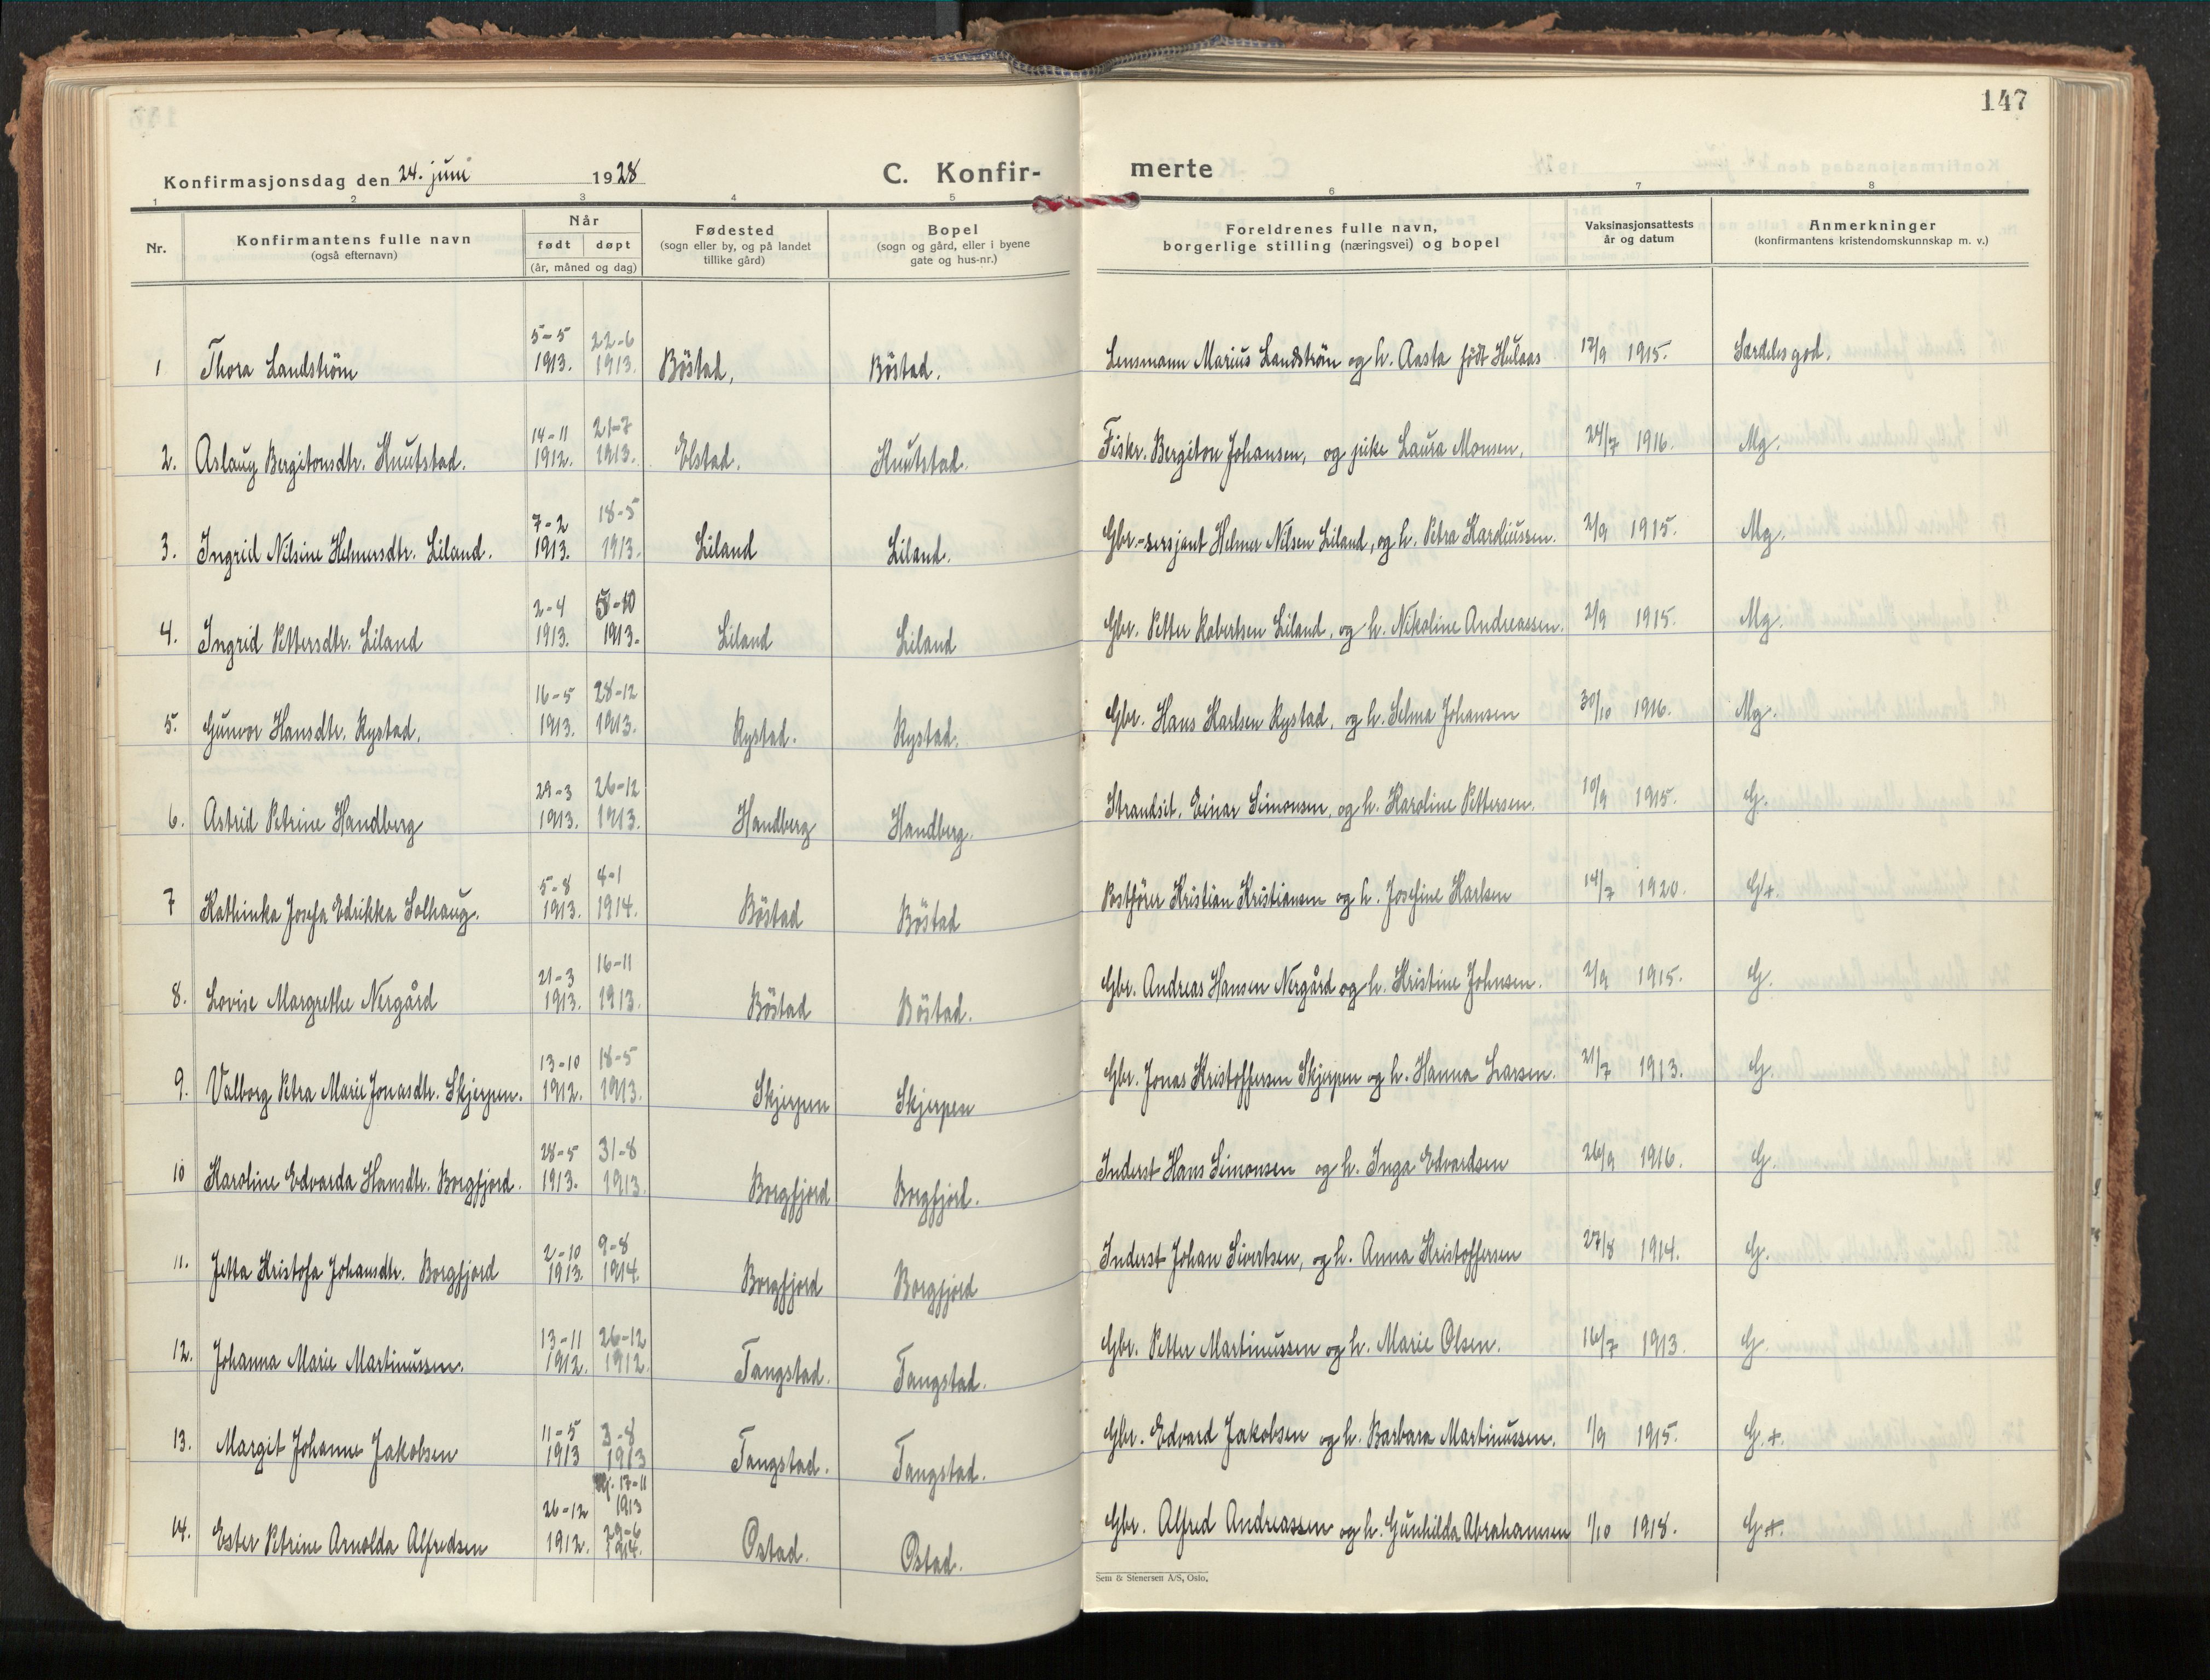 147
Konfirmasjonsdag den 24. juni 1928 C. Konfir- merte
1 2 3 4 5 6 7 8
Nr. Konfirmantens fulle navn (også efternavn) Når født døpt (år, måned og dag) Fødested (sogn eller by, og på landet tillike gård) Bopel (sogn og gård, eller i byene gate og hus-nr.) Foreldrenes fulle navn, borgerlige stilling (næringsvei) og bopel Vaksinasjonsattests år og datum Anmerkninger (konfirmantens kristendomskunnskap m. v.)
5-5 22-6
1 Thora Landstrøm 1913. 1913. Böstad, Böstad. Lensmann Marius Landstrøm og h. Aasta født Hulaas 17/9 1915. Særdeles god.
14-11 21-7
2. Aslaug Bergitonsdtr. Knutstad. 1912. 1913. Elstad. Knutstad. Fisker. Bergiton Johansen, og pike Laura Monsen. 24/7 1916. Mg.
7-2 18-5
3. Ingrid Nilsine Helmersdtr. Liland. 1913. 1913. Liland Liland. Gbr.-sersjant Helmer Nilsen Liland, og h. Petra Karoliussen. 2/9 1915. Mg.
2-4 5-10
4. Ingrid Pettersdtr. Liland 1913. 1913. Liland Liland Gbr. Petter Robertsen Liland, og h. Nikoline Andreassen. 2/9 1915. Mg.
16-5 28-12
5. Gunvor Hansdtr. Rystad. 1913. 1913. Rystad. Rystad. Gbr. Hans Karlsen Rystad, og h. Selma Johansen 30/10 1916. Mg.
29-3 26-12
6. Astrid Petrine Handberg 1913. 1913. Handberg Handberg. Strandsit. Einar Simonsen, og h. Karoline Pettersen. 10/9 1915. G.
5-8 4-1
7 Kathinka Josefa Edrikka Solhaug. 1913. 1914. Böstad Böstad Postfører Kristian Kristiansen og h. Josefine Karlsen 14/7 1920. G+.
21-3 16-11
8. Lovise Margrethe Nergård 1913. 1913. Böstad Böstad. Gbr. Andreas Hansen Nergård og h. Kristine Johnsen. 2/9 1915. G.
13-10 18-5
9. Valborg Petra Marie Jonasdtr. Skjerpen. 1912. 1913. Skjerpen Skjerpen Gbr. Jonas Kristoffersen Skjerpen og h. Hanna Larsen. 21/7 1913. G.
28-5 31-8
10 Karoline Edvarda Hansdtr. Borgfjord. 1913. 1913. Borgfjord Borgfjord. Inderst Hans Simonsen og h. Inga Edvardsen 26/9 1916. G.
2-10 9-8
11. Jetta Kristofa Johansdtr. Borgfjord 1913. 1914. Borgfjord Borgfjord Inderst Johan Sivertsen, og h. Anna Kristoffersen 27/8 1914. G.
13-11 26-12
12. Johanna Marie Martinussen. 1912. 1912. Tangstad. Tangstad. Gbr. Petter Martinussen og h. Marie Olsen. 16/7 1913. G.
11-5 3-8
13. Margit Johanne Jakobsen 1913 1913 Tangstad. Tangstad. Gbr. Edvard Jakobsen og h. Barbara Martinussen. 1/9 1915. G.+.
17-11
26-12 1913
29-6
14. Ester Petrine Arnolda Alfredsen 1912. 1914. Ostad. Ostad. Gbr. Alfred Andreassen og h. Gunhilda Abrahamsen 1/10 1918. G+.
Sem & Stenersen A/S, Oslo.